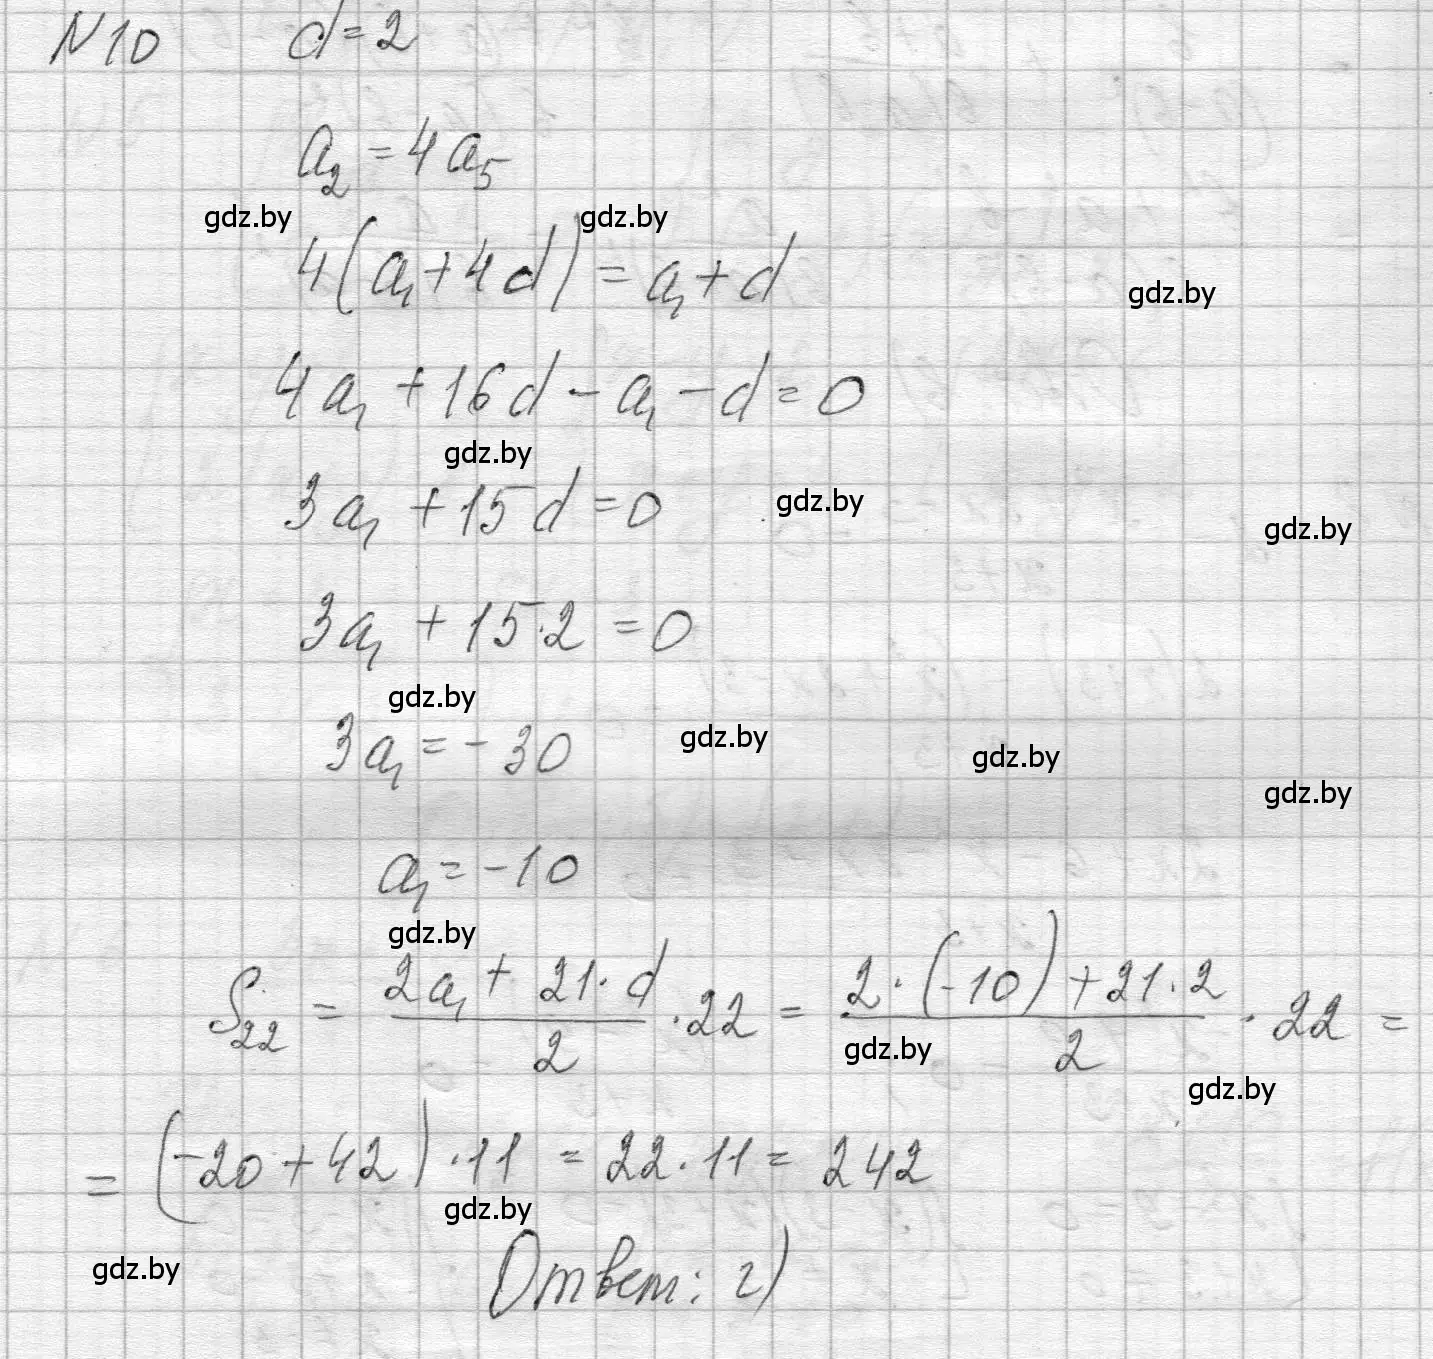 N10 d=2
a₂ = 4a₅
gdz.by gdz.by
4(a₁+4d) = a₁+d
gdz.by
4a₁ + 16d - a₁ - d = 0
gdz.by
3a₁ + 15d = 0
gdz.by
gdz.by
3a₁ + 15·2 = 0
gdz.by
3a₁ = -30
gdz.by
gdz.by
gdz.by
a₁ = -10
gdz.by
S₂₂ = (2a₁ + 21·d)/2 · 22 = (2·(-10)+21·2)/2 · 22 =
gdz.by
gdz.by
= (-20+42)·11 = 22·11 = 242
gdz.by
gdz.by
Ответ: г)